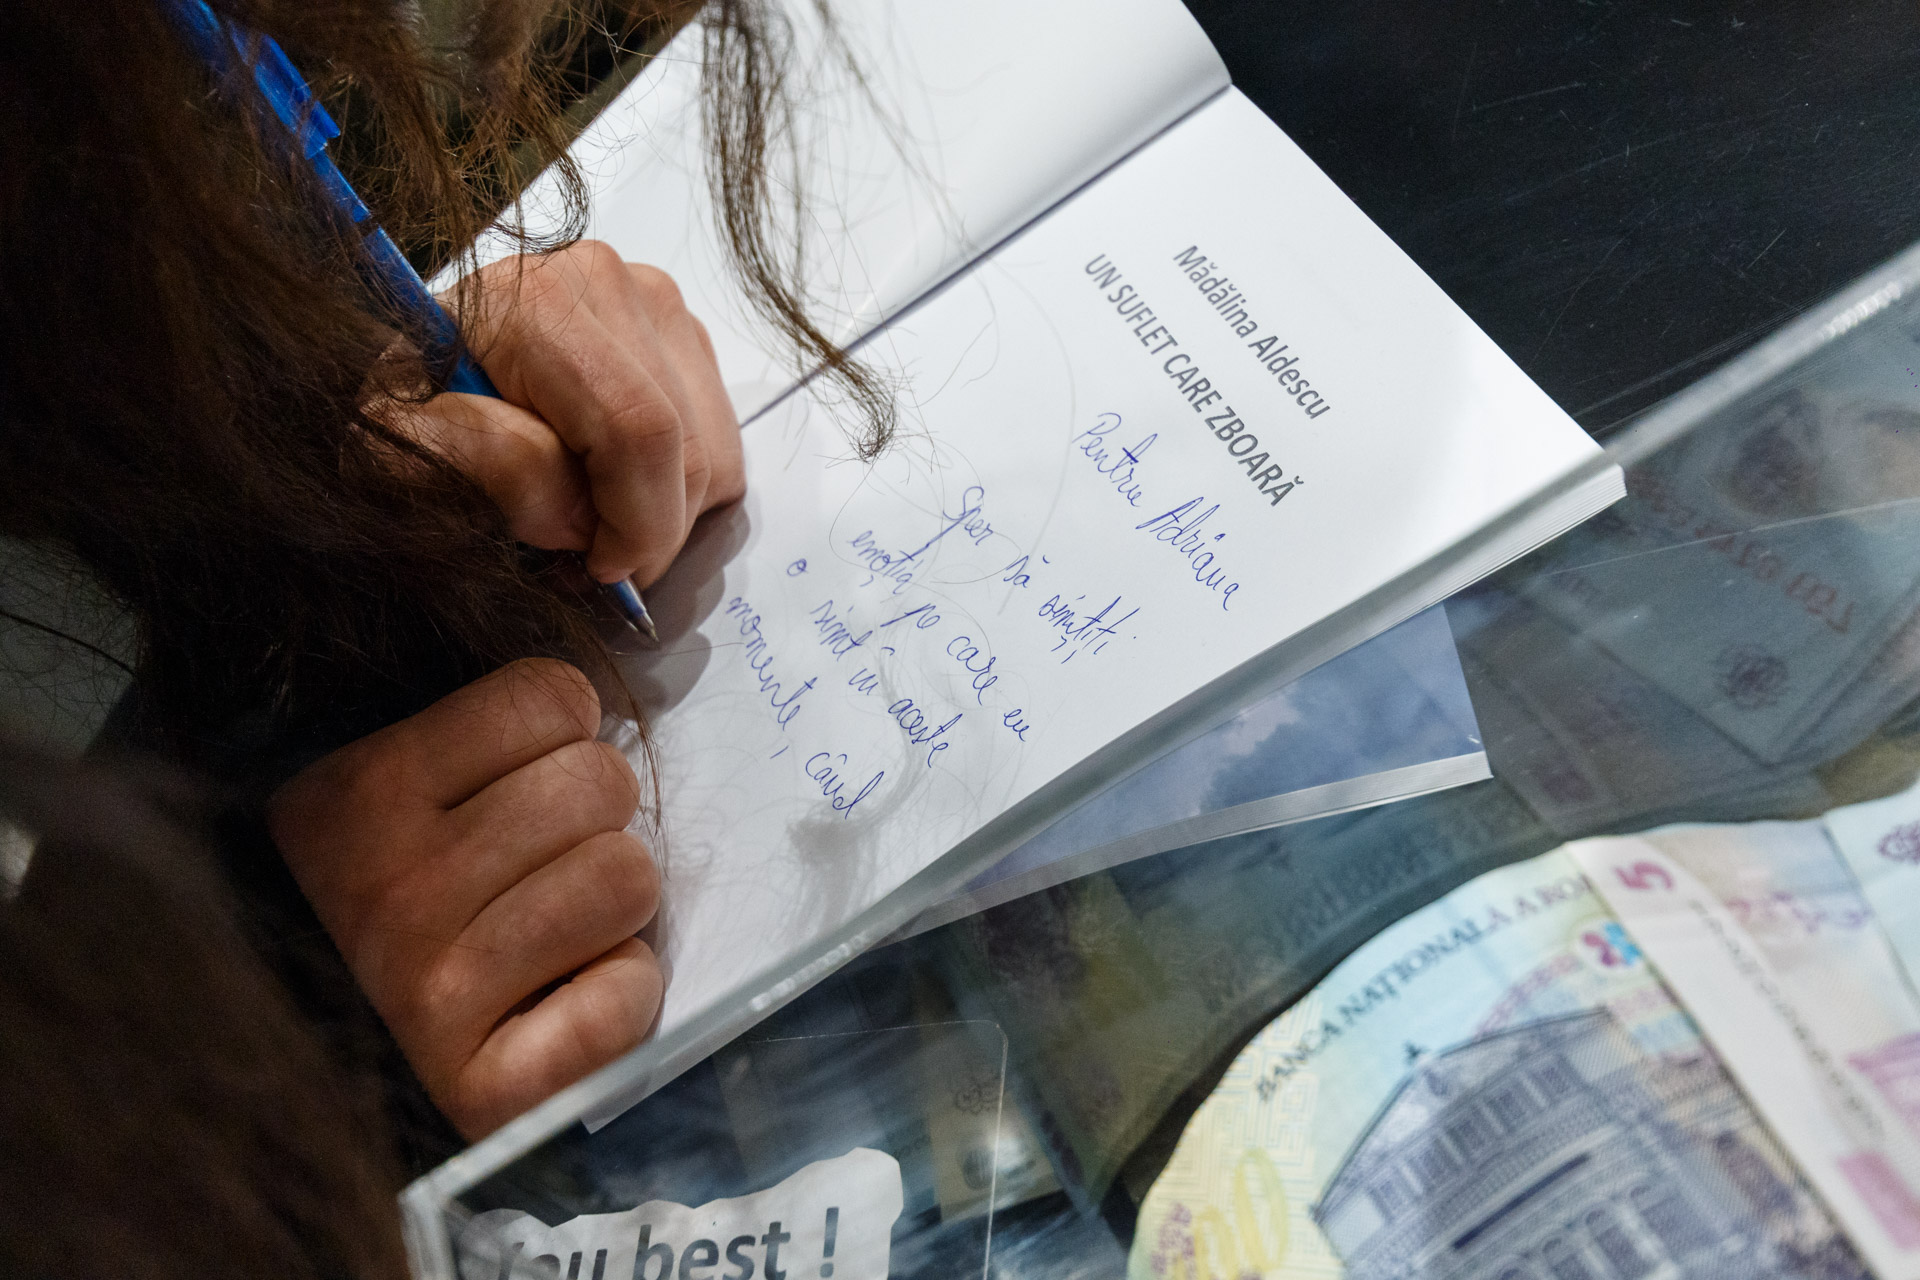 Mădălina Aldescu
UN SUFLET CARE ZBOARĂ
Pentru Adriana
Sper să simțiți
emoția pe care eu
o simt în aceste
momente, când
BANCA NAȚIONALĂ A ROM
5
50
best !